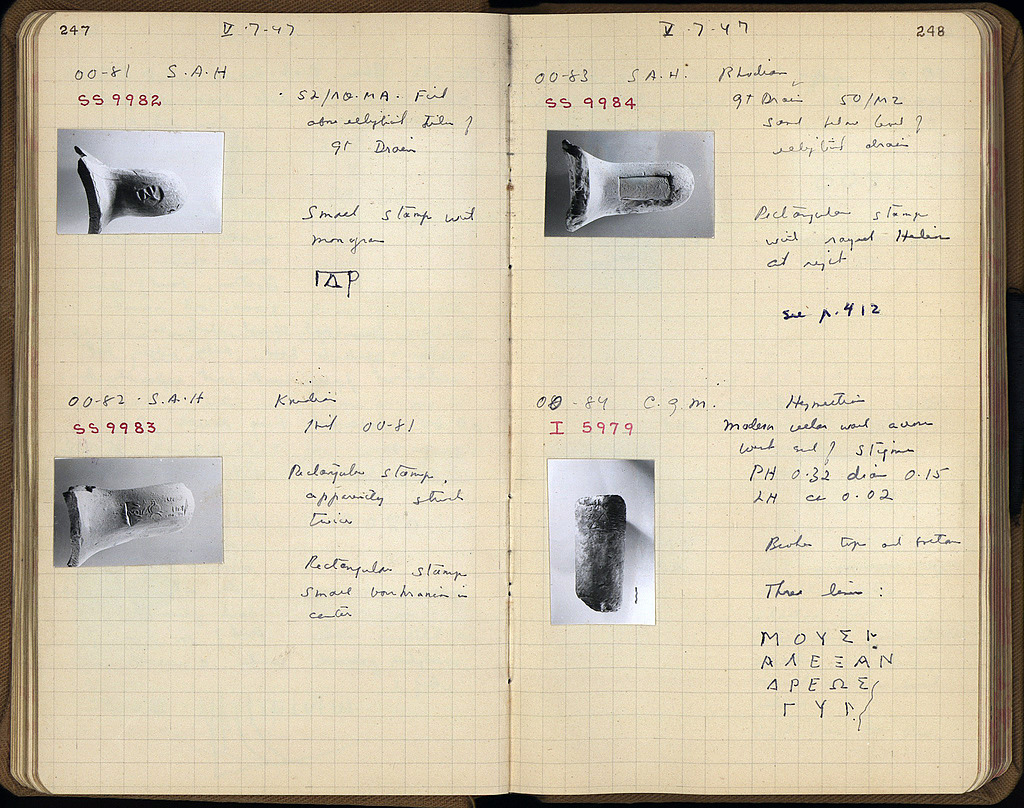 247
V · 7 · 47
00-81 S.A.H
SS 9982
52/ΛΘ. MA. Fill
above elliptical tiles of
gt Drain
Small stamp with
monogram
ΓΔΡ
00-82 · S.A.H Knidian
SS 9983
Find 00-81
Rectangular stamp,
apparently struck
twice
Rectangular stamp
small boukranion in
center
V · 7 · 47
248
00-83 S.A.H. Rhodian
SS 9984
gt Drain 50/
elliptical drain
Rectangular stamp
with rayed Helios
at right
see p. 412
00-84 C.G.M. Hymettian
I 5979
Modern cellar wall across
west end of Stigma
PH 0.32 diam 0.15
LH ca 0.02
Broken top and bottom
Three lines :
ΜΟΥΣΙ
ΑΛΕΞΑΝ
ΔΡΕΩΣ
ΓΥΝ